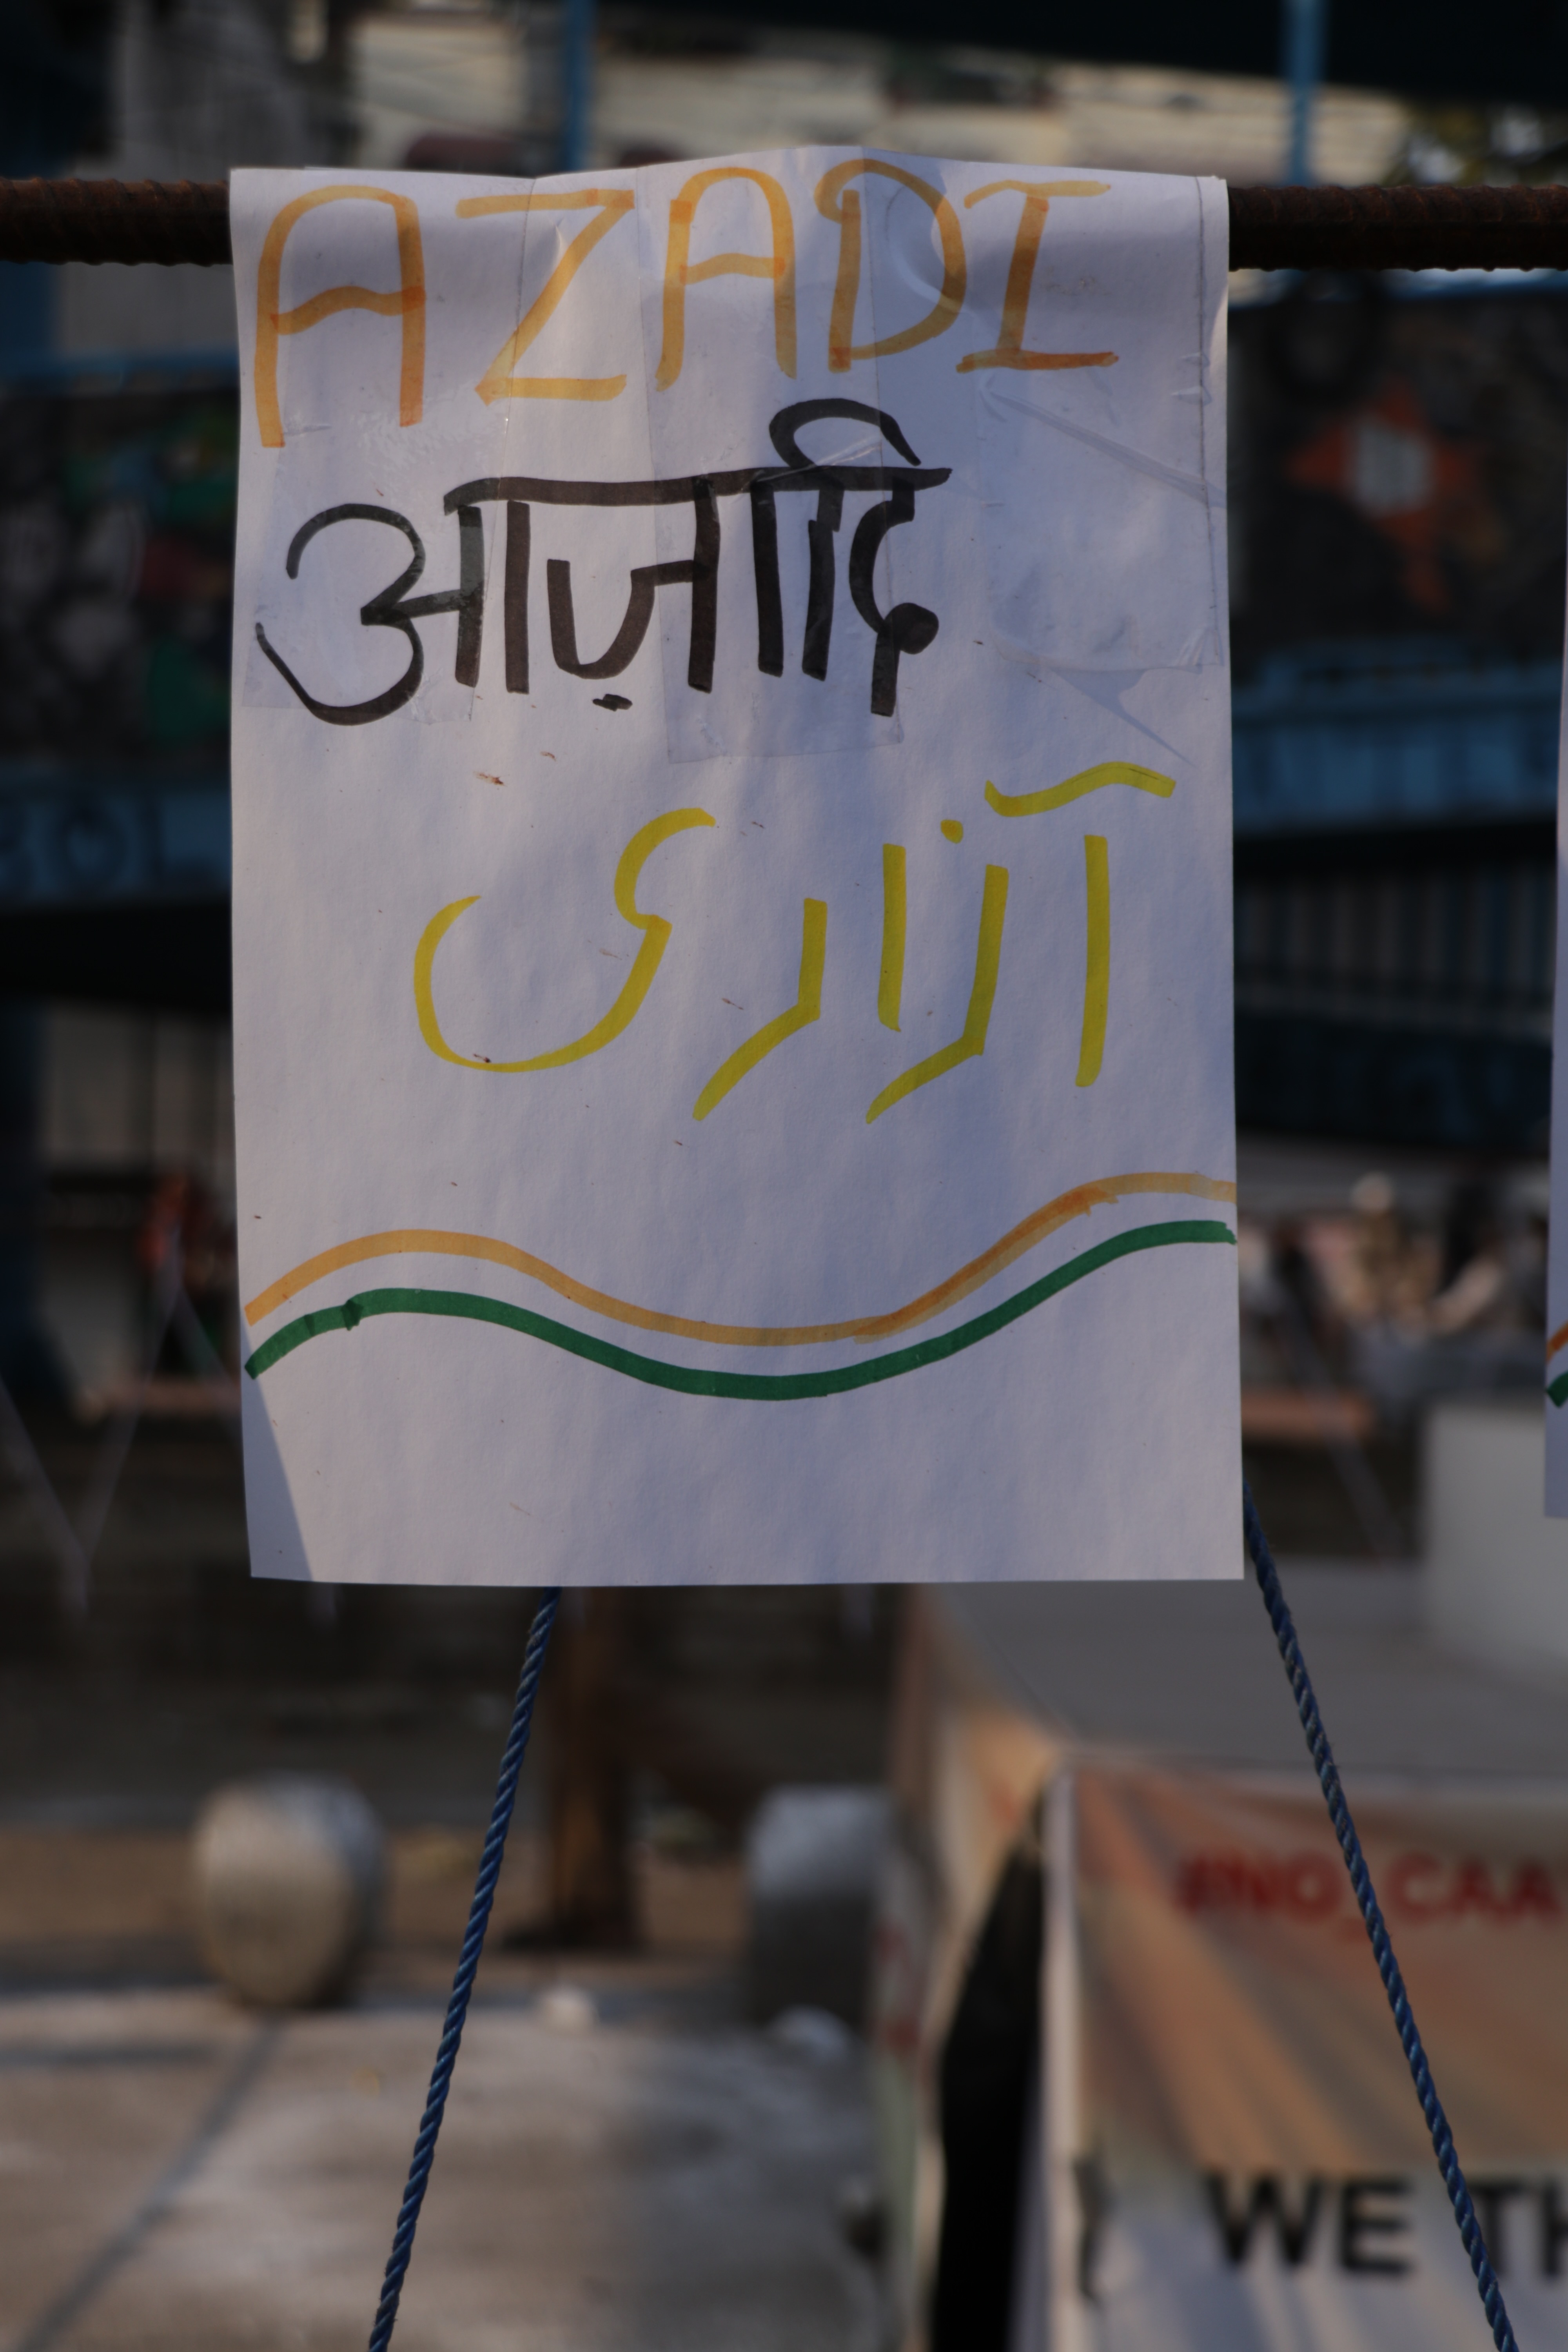 AZADI
आज़ादि
آزادی
#NO_CAA
WE TH